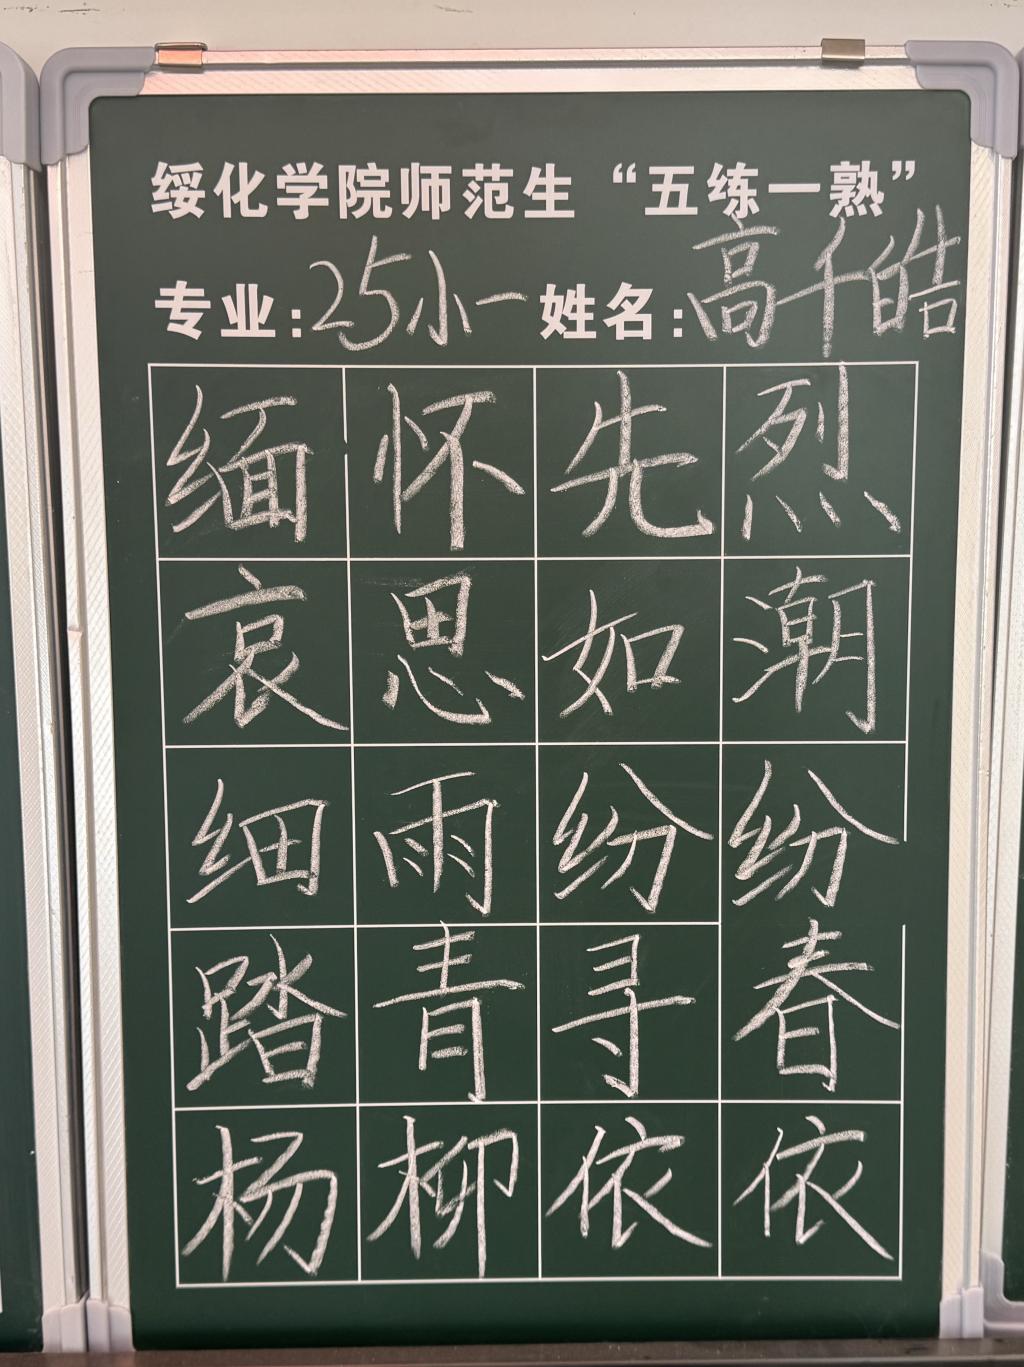 绥化学院师范生“五练一熟”
专业:25小一 姓名:高千皓
缅怀先烈
哀思如潮
细雨纷纷
踏青寻春
杨柳依依